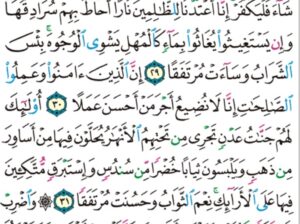 شَآءَ فَلْيَكْفُرْ إِنَّآ أَعْتَدْنَا لِلظَّٰلِمِينَ نَارًا أَحَاطَ بِهِمْ سُرَادِقُهَا
وَإِن يَسْتَغِيثُوا۟ يُغَاثُوا۟ بِمَآءٍ كَٱلْمُهْلِ يَشْوِى ٱلْوُجُوهَ بِئْسَ
ٱلشَّرَابُ وَسَآءَتْ مُرْتَفَقًا ٢٩ إِنَّ ٱلَّذِينَ ءَامَنُوا۟ وَعَمِلُوا۟
ٱلصَّٰلِحَٰتِ إِنَّا لَا نُضِيعُ أَجْرَ مَنْ أَحْسَنَ عَمَلًا ٣٠ أُو۟لَٰٓئِكَ
لَهُمْ جَنَّٰتُ عَدْنٍ تَجْرِى مِن تَحْتِهِمُ ٱلْأَنْهَٰرُ يُحَلَّوْنَ فِيهَا مِنْ أَسَاوِرَ
مِن ذَهَبٍ وَيَلْبَسُونَ ثِيَابًا خُضْرًا مِّن سُندُسٍ وَإِسْتَبْرَقٍ مُّتَّكِـِٔينَ
فِيهَا عَلَى ٱلْأَرَآئِكِ نِعْمَ ٱلثَّوَابُ وَحَسُنَتْ مُرْتَفَقًا ٣١ ۞ وَٱضْرِبْ